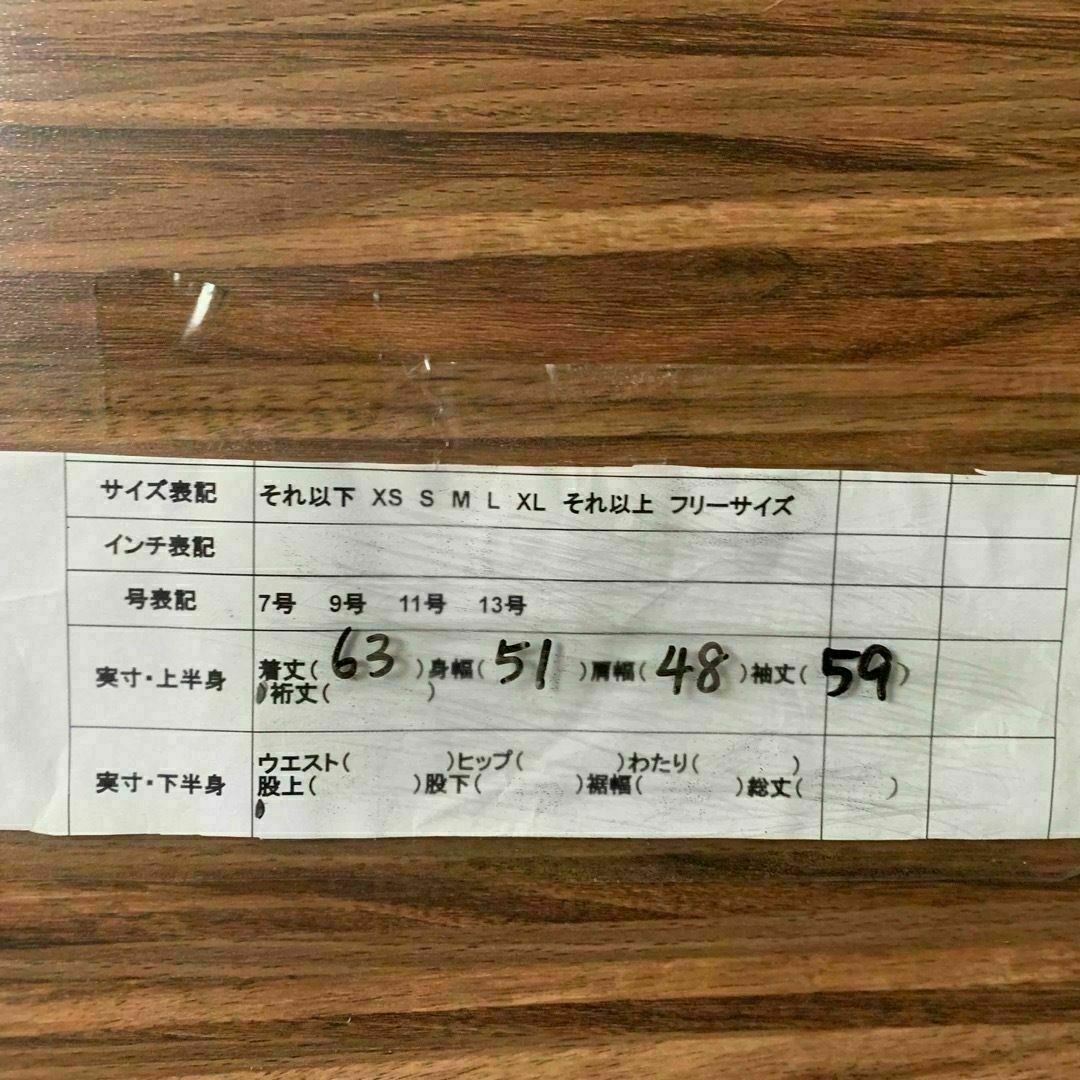 サイズ表記 それ以下 XS S M L XL それ以上 フリーサイズ
インチ表記
号表記 7号 9号 11号 13号
実寸・上半身 着丈( 63 )身幅( 51 )肩幅( 48 )袖丈( 59 )
裄丈( )
実寸・下半身 ウエスト( )ヒップ( )わたり( )
股上( )股下( )裾幅( )総丈( )